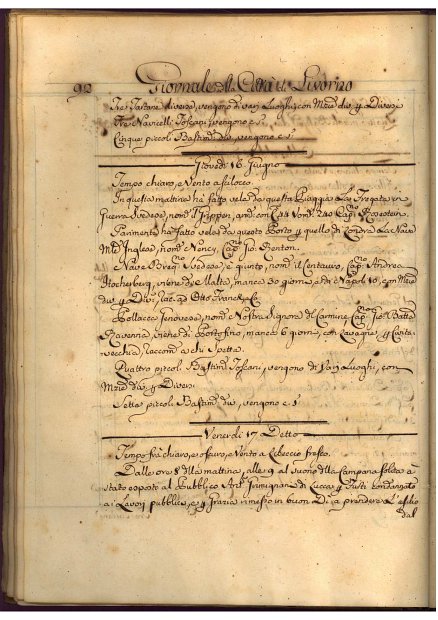 92 Giornale di Città di Livorno
Tre Tartane diverse, vengono di varj Luoghi con Mzie div. p Diversi
Tre Navicelli Toscani vengono e s.ª
Cinque piccoli Bastim.ti div. vengono e s.ª
Giovedì 16 Giugno
Tempo chiaro, e Vento a Scilocco.
In questa mattina hà fatto vela da questa Piaggia La Fregata in
Guerra Svedese, nom.ª Trippen, con C. 44 Uom. 240 Cap.no Rosenstein.
Parimente hà fatto vela da questo Porto p quello di Londra La Nave
Inglese, nom.ª Nency, Cap.no Gio. Benton.
Nave Svedese, è giunto, nom. il Centauro, Cap. Andrea
viene di Malta, manca 30 giorni, e di Napoli 10, con Mzie
div. p Div. racc. a Otto Franck e C.
Pollacca Genovese, nom.ª Nostra Signora del Carmine Cap.no Gio. Batta
Ravenna, viene di Portofino, manca 6 giorni, con p Civita-
vecchia, raccom. a chi Spetta.
Quattro piccoli Bastim.ti Toscani, vengono di Varj Luoghi, con
Mzie div. p Diversi
Sette piccoli Bastim.ti div. vengono e s.ª
Venerdì 17 Detto
Tempo frà chiaro, e oscuro, e Vento a Libeccio fresco.
Dalle ore 8 della mattina, alle 9 al suono della Campana solita è
stato esposto al Pubblico Ant.º di Lucca p Furti condannato
a i Lavori pubblici, e p grazia rimesso in buon Dì a prendere L'esilio
dal